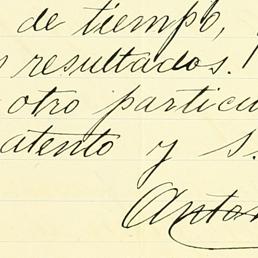 de tiempo,
resultados.
otro particu
atento y S.
Anton